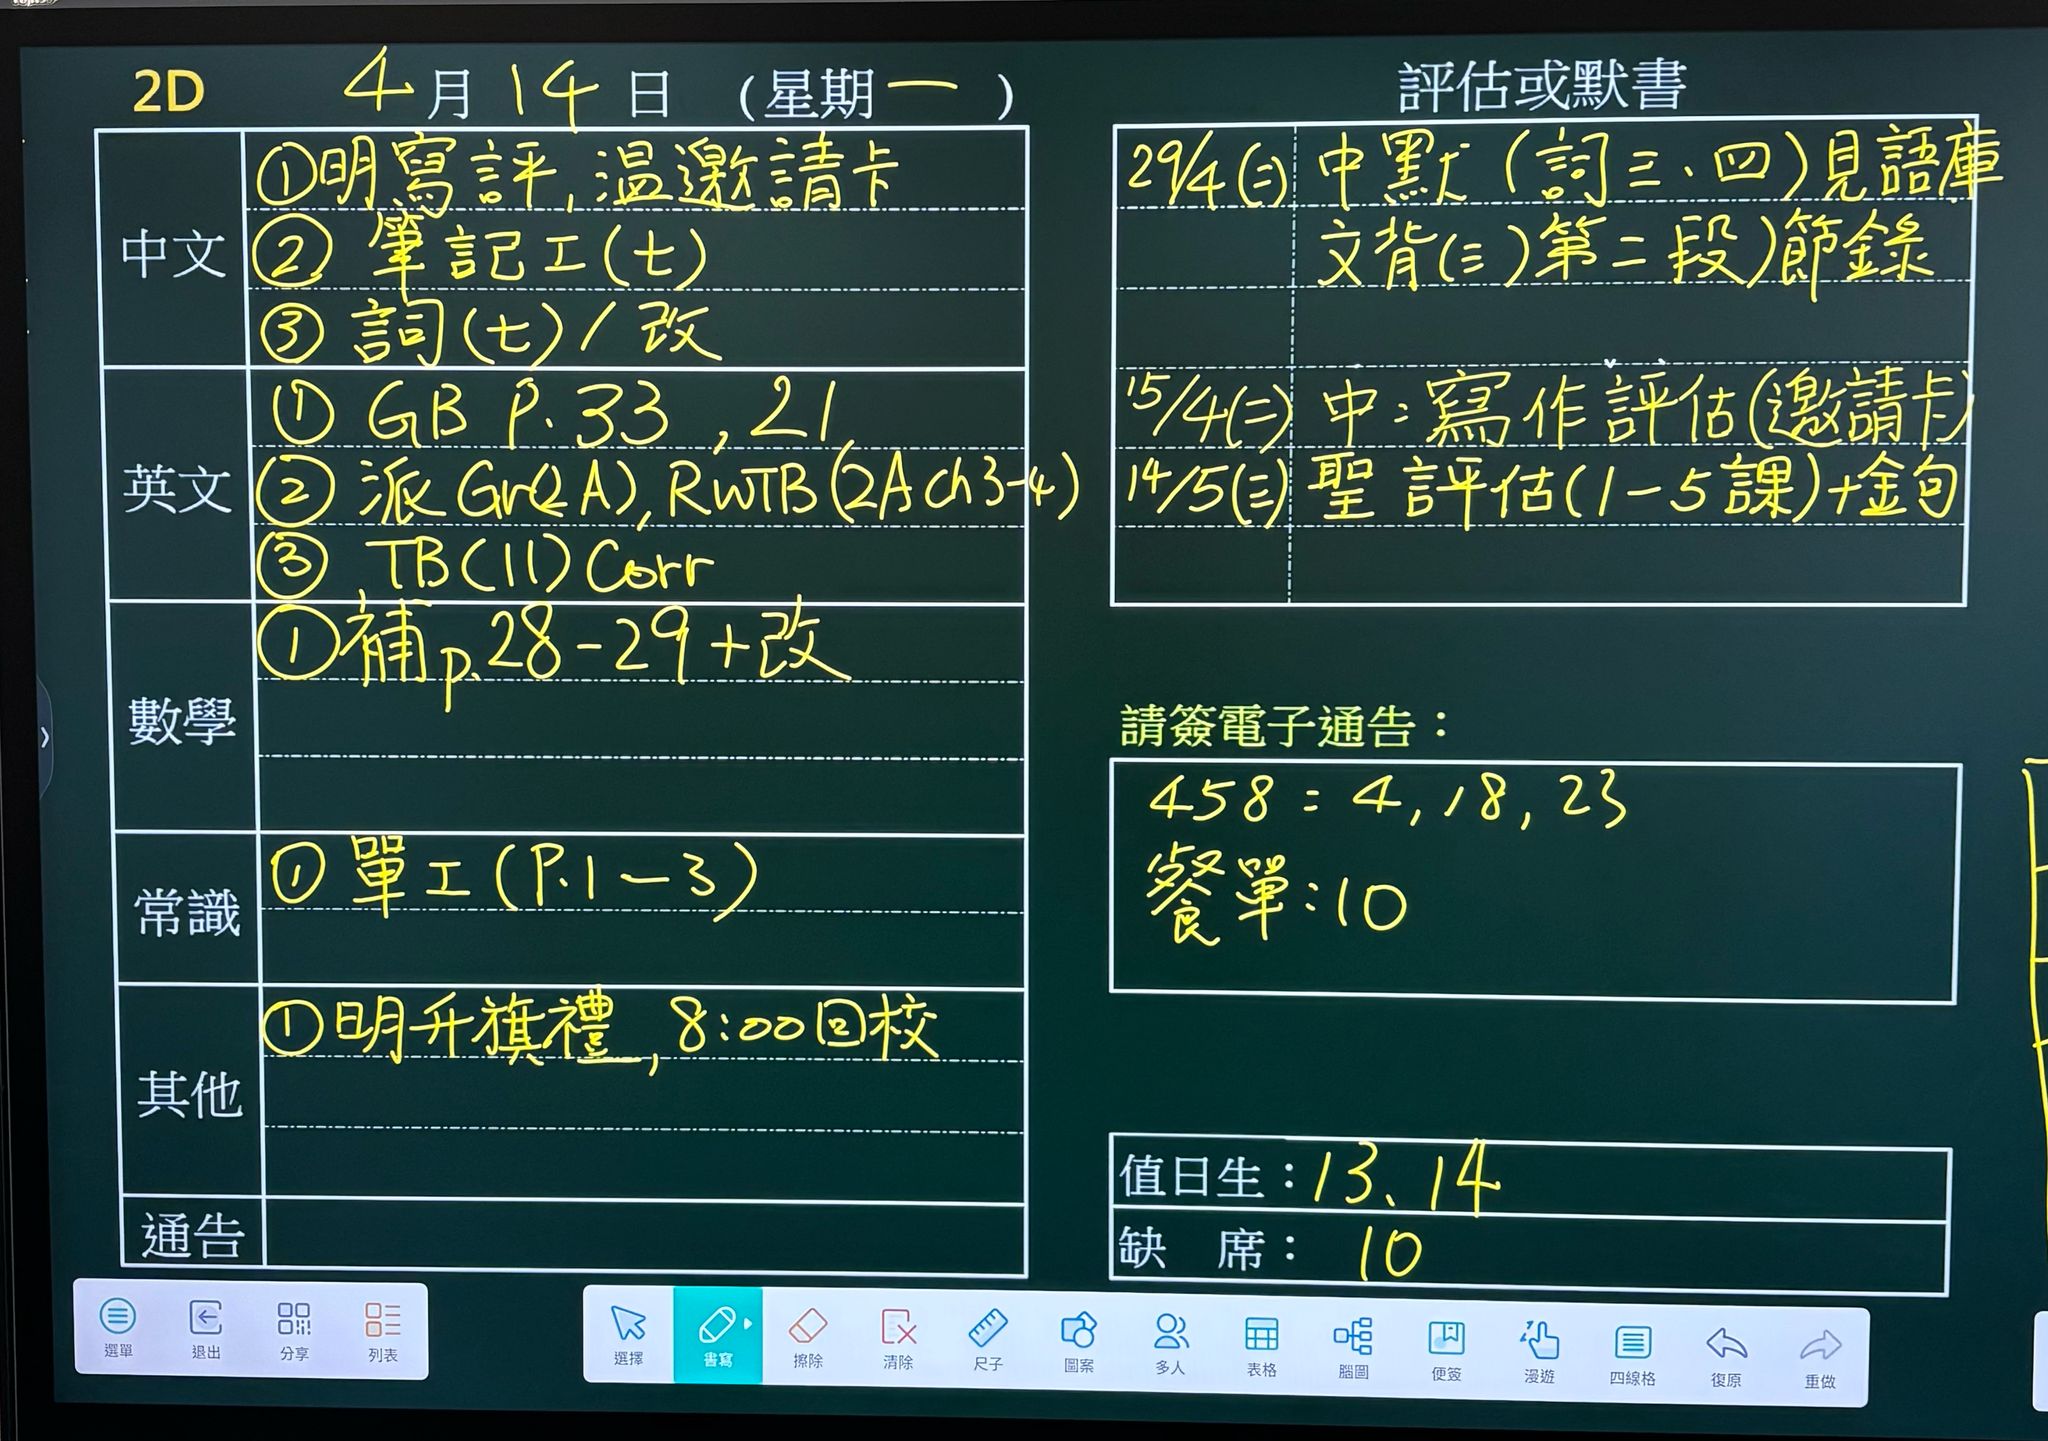 2D 4月14日（星期一）
中文
①明寫評,溫邀請卡
② 筆記工(七)
③ 詞(七)/改
英文
① GB P.33 , 21
② 派 Gr(2A), RWTB(2A ch3-4)
③ TB(11) Corr
數學
①補p.28-29+改
常識
① 單工(P.1-3)
其他
①明升旗禮, 8:00回校
通告
評估或默書
29/4(二) 中默(詞三、四)見語庫
文背(三)第二段)節錄
15/4(二) 中:寫作評估(邀請卡)
14/5(三) 聖評估(1-5課)+金句
請簽電子通告：
458 : 4, 18, 23
餐單:10
值日生：13、14
缺 席： 10
選單 退出 分享 列表
選擇 書寫 擦除 清除 尺子 圖案 多人 表格 腦圖 便簽 漫遊 四線格 復原 重做